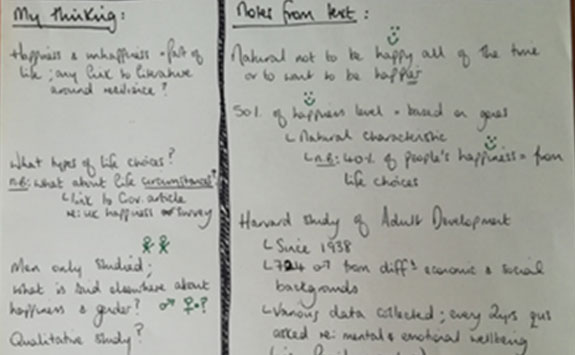 My thinking:
Happiness & unhappiness = part of
life; any link to literature
around resilience?
What types of life choices?
n.B: what about life circumstances?
↳ link to Gov. article
re: UK happiness survey
Men only studied;
what is said elsewhere about
happiness & gender? ♂ ♀?
Qualitative study?
Notes from text:
Natural not to be happy all of the time
or to want to be happier
50% of happiness level = based on genes
↳ Natural characteristic
↳ n.B: 40% of people's happiness = from
life choices
Harvard study of Adult Development
↳ Since 1938
↳ 724 ♂ from diff' economic & social
backgrounds
↳ Various data collected; every 2yrs qus
asked re: mental & emotional wellbeing